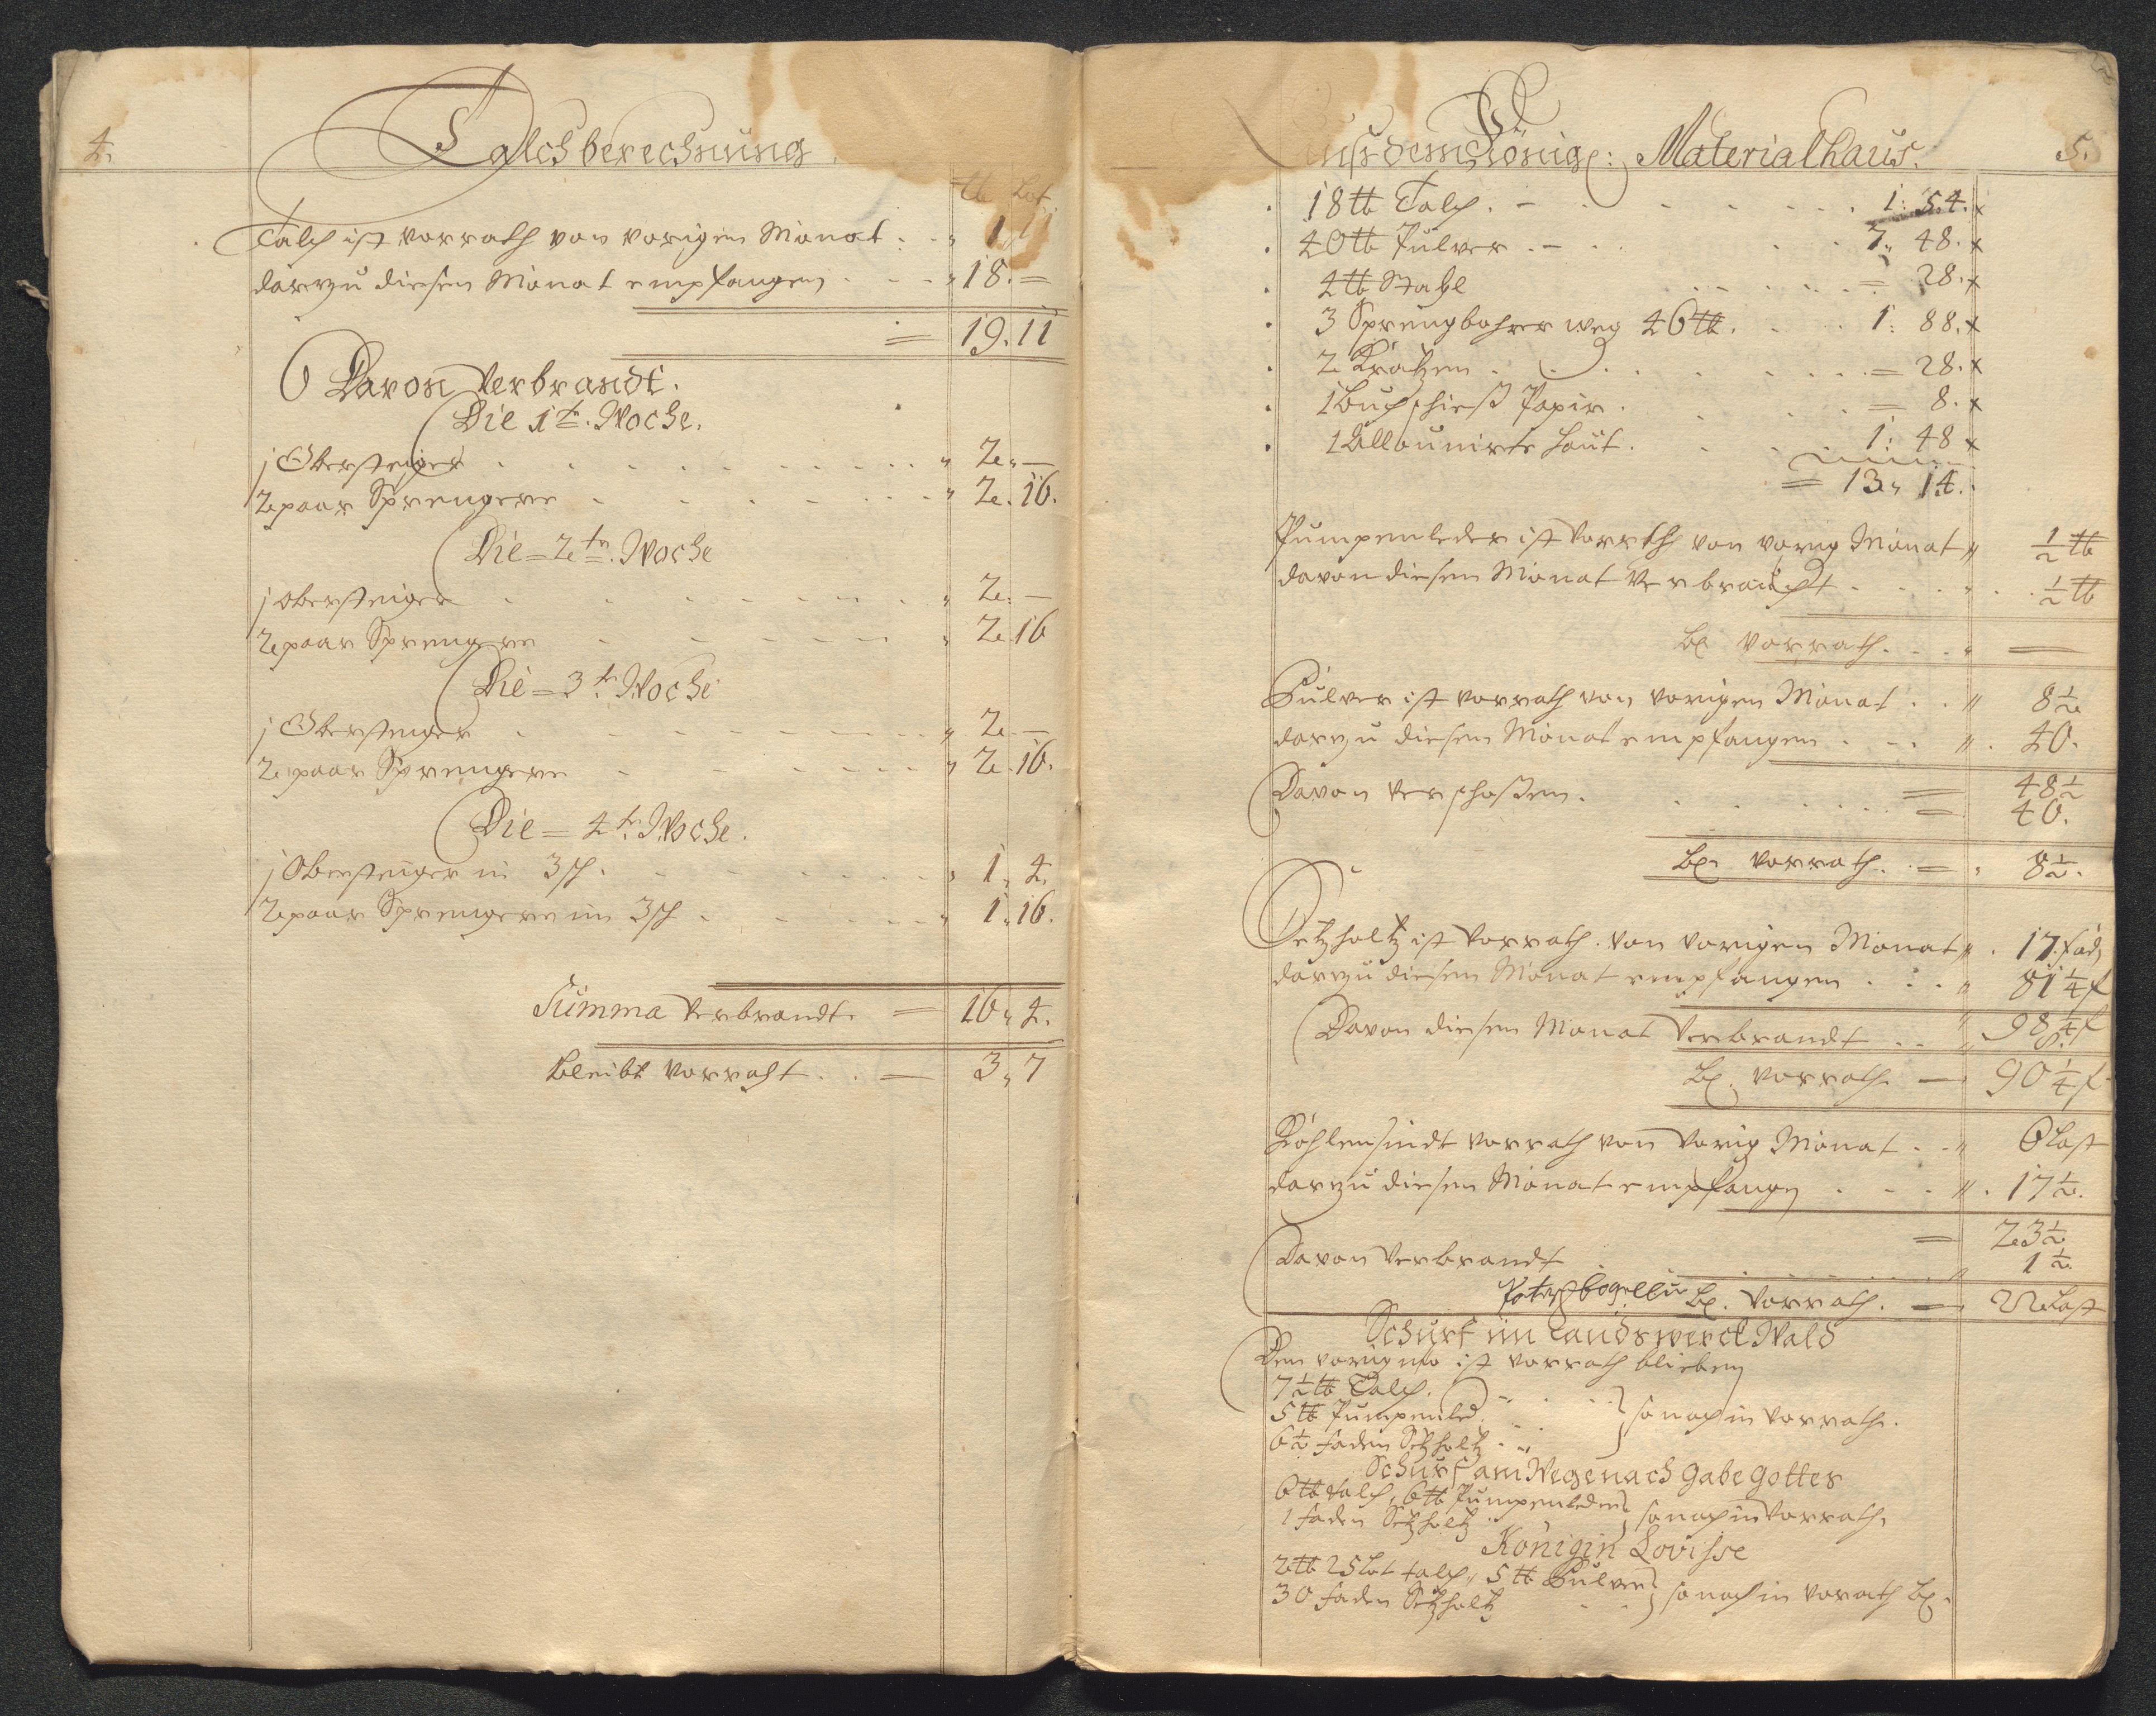 4.
Talchberechnung
tb Lot.
Talch ist vorrath von vorigen Monat . . „ 1 11
darzu diesen Monat empfangen . . . „ 18. =
= 19. 11
Davon Verbrandt.
Die 1te. Woche.
1 Obersteiger . . . . . . . „ 2. —
2 paar Sprengere . . . . . . „ 2. 16.
Die = 2te. Woche
1 obersteiger . . . . . . „ 2. —
2 paar Sprengere . . . . . „ 2 16
Die = 3te Woche
1 Obersteiger . . . . . . „ 2 —
2 paar Sprengere . . . . . „ 2. 16.
Die = 4te Woche.
1 Obersteiger in 3 sch. . . . . . „ 1. 4.
2 paar Sprengere in 3 sch . . . . . „ 1. 16.
Summa Verbrandt. = 16 „ 4.
bleibt vorraht . . = 3 „ 7
5.
Auss dem König: Materialhaus.
18 tb Talch . – . . . . 1: 54. x
40 tb Pulver . – . . . . 7„ 48. x
4 tb Stahl . . . . . = 28. x
3 Sprengbohrer weg 46 tb. . . . 1: 88. x
2 Kratzen . . . . . . = 28. x
1 Buch schieß Papir . . . . = 8. x
1 Allounirte haut. . . . 1: 48 x
= 13 „ 14.
Pumpenleder ist Vorrath von vorig Monat „ 1/2 tb
davon diesen Monat Verbraucht . . . „ . . 1/2 tb
bl vorrath. . . „ —
Pulver ist vorrath von vorigen Monat . . „ 8 1/2
darzu diesen Monat empfangen . . . „ . 40.
= 48 1/2
Davon verschoßen. . . . . = 40.
bl. vorrath. . = . 8 1/2.
Setzholtz ist Vorrath. von vorigen Monat „ . 17. fad
darzu diesen Monat empfangen . . . „ 81 1/4 f
„ 98 1/4 f
Davon diesen Monat Verbrandt . . „ 8.
bl. vorrath. — 90 1/4 f
Kohlen sindt vorrath von Vorig Monat . . „ 6 Last
darzu diesen Monat empfang . . . „ . 17 1/2.
= 23 1/2
Davon Verbrandt . . . . . „ 1 1/2
bl. Vorrath. = 22 Last
Schurf im Landswerck Wald
Von vorig mo ist vorrath blieben
7 1/2 tb Talch.
5 tb Pumpenled. } so noch in Vorrath.
6 1/2 faden Setzholtz . .
Schurf am Wege nach Gabe Gottes
6 tb talch, 6 tb Pumpenleder } so noch in Vorrath.
1 faden Setzholtz
Königin Lovisse
2 tb 25 Lot talch „ 5 tb Pulver } so noch in vorath bl.
30 faden Setzholtz